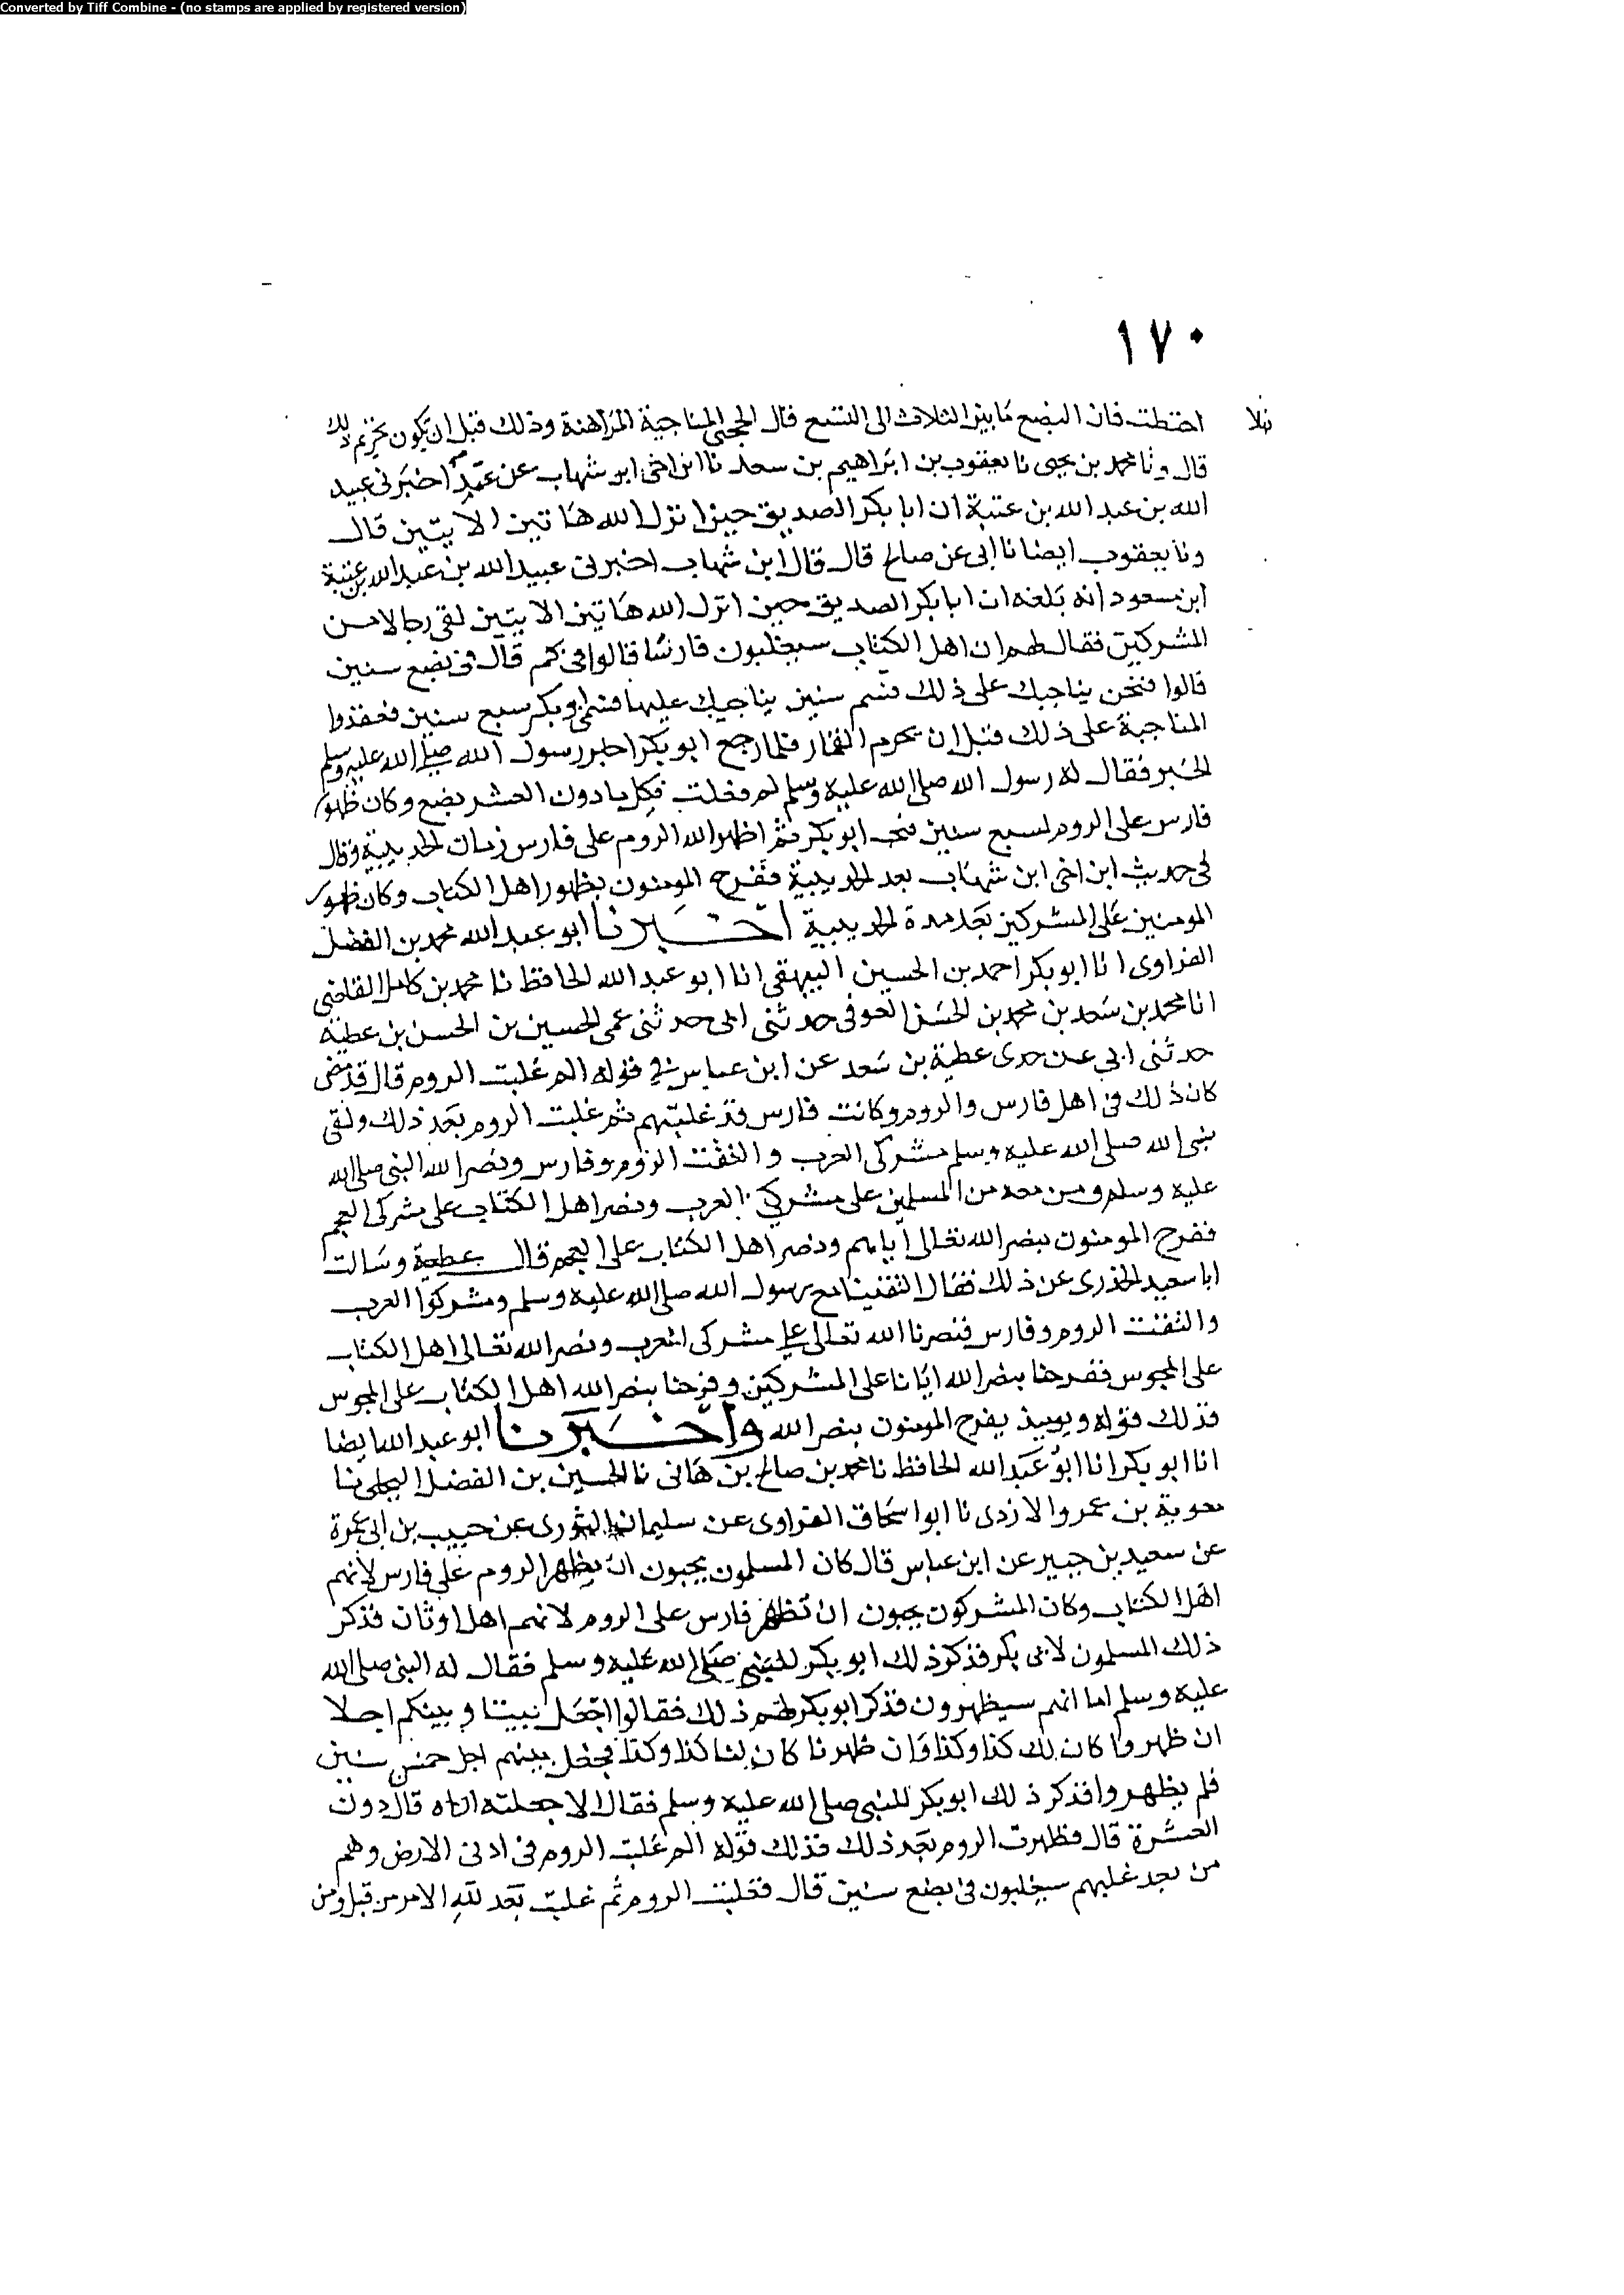 Converted by Tiff Combine - (no stamps are applied by registered version)
١٧٠
احتطت فان البضع ما بين الثلاث الى التسع قال الجمحي المناحبة المراهنة وذلك قبل ان يكون تحريم ذلك
قال ونا محمد بن يحيى نا يعقوب بن ابراهيم بن سعد نا ابن اخي ابن شهاب عن عمه اخبرني عبيد
الله بن عبد الله بن عتبة ان ابا بكر الصديق حين انزل الله هاتين الايتين قال
ونا يعقوب ايضا نا ابي عن صالح قال قال ابن شهاب اخبرني عبيد الله بن عبد الله بن عتبة
ابن مسعود انه بلغه ان ابا بكر الصديق حين انزل الله هاتين الايتين لقي رجالا من
المشركين فقال لهم ان اهل الكتاب سيغلبون فارسا قالوا في كم قال في بضع سنين
قالوا فنحن يناحبك على ذلك فسم سنين يناحبك عليها فسمى ابو بكر سبع سنين فعقدوا
المناحبة على ذلك قبل ان يحرم القمار فلما رجع ابو بكر اخبر رسول الله صلى الله عليه وسلم
الخبر فقال له رسول الله صلى الله عليه وسلم لم فعلت فكل ما دون العشر بضع وكان ظهور
فارس على الروم لسبع سنين ابو بكر ثم اظهر الله الروم على فارس زمان الحديبية وقال
في حديث ابن اخي ابن شهاب بعد الحديبية ففرح المومنون بظهور اهل الكتاب وكان ظهور
المومنين على المشركين بعد مدة الحديبية اخبرنا ابو عبد الله محمد بن الفضل
الفراوى انا ابو بكر احمد بن الحسين البيهقي انا ابو عبد الله الحافظ نا محمد بن كامل القاضي
انا محمد بن سعد بن محمد بن الحسن العوفي حدثني ابي حدثني عمي الحسين بن الحسن بن عطية
حدثني ابي عن جدى عطية بن سعد عن ابن عباس في قوله الم غلبت الروم قال قد مضى
كان ذلك في اهل فارس والروم وكانت فارس قد غلبتهم ثم غلبت الروم بعد ذلك ولقي
نبي الله صلى الله عليه وسلم مشركى العرب والتقت الروم وفارس ونصر الله النبي صلى الله
عليه وسلم ومن معه من المسلمين على مشركي العرب ونصر اهل الكتاب على مشركى العجم
ففرح المومنون بنصر الله تعالى اياهم ونصر اهل الكتاب على العجم قال عطية وسالت
ابا سعيد الخدرى عن ذلك فقال التقينا مع رسول الله صلى الله عليه وسلم ومشركوا العرب
والتقت الروم وفارس فنصرنا الله تعالى على مشركى العرب ونصر الله تعالى اهل الكتاب
على المجوس ففرحنا بنصر الله ايانا على المشركين وفرحنا بنصر الله اهل الكتاب على المجوس
فذلك قوله ويوميذ يفرح المومنون بنصر الله واخبرنا ابو عبد الله ايضا
انا ابو بكر انا ابو عبد الله الحافظ نا محمد بن صالح بن هانى نا الحسين بن الفضل البجلى نا
معوية بن عمرو الازدى نا ابو اسحاق الفزاوى عن سليمان الثورى عن حبيب بن ابي عمرة
عن سعيد بن جبير عن ابن عباس قال كان المسلمون يحبون ان يظهر الروم على فارس لانهم
اهل الكتاب وكان المشركون يحبون ان تظهر فارس على الروم لانهم اهل اوثان فذكر
ذلك المسلمون لابى بكر فذكر ذلك ابو بكر للنبي صلى الله عليه وسلم فقال له النبي صلى الله
عليه وسلم اما انهم سيظهرون فذكر ابو بكر لهم ذلك فقالوا اجعل بيننا وبينكم اجلا
ان ظهروا كان لك كذا وكذا وان ظهرنا كان لنا كذا وكذا فجعل بينهم اجل خمس سنين
فلم يظهروا فذكر ذلك ابو بكر للنبي صلى الله عليه وسلم فقال الا جعلته اراه قال دون
العشرة قال فظهرت الروم بعد ذلك فذلك قوله الم غلبت الروم في ادنى الارض وهم
من بعد غلبهم سيغلبون في بضع سنين قال فغلبت الروم ثم غلبت بعد لله الامر من قبل ومن